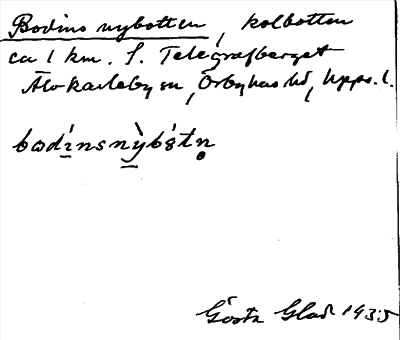 Bodins nybotten, kolbotten
ca 1 km. S. Telegrafberget
Älvkarleby sn, Örbyhus hd, Upps. l.
bωdìnsnỳbátn̥
Gösta Glad 1935